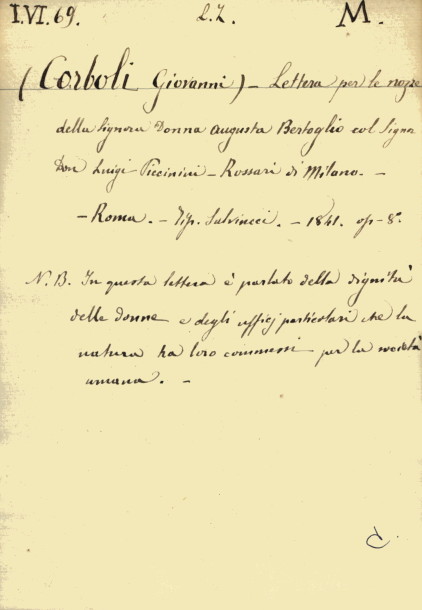 I.VI.69. L.Z. M.
(Corboli Giovanni) – Lettera per le nozze
della Signora Donna Augusta Bertoglio col Signor
Don Luigi Piccinini – Rossari di Milano. –
– Roma. – Tip. Salviucci. – 1841. op – 8º.
N.B. In questa lettera è parlato della dignità
delle donne e degli ufficj particolari che la
natura ha loro commessi per la società
umana. –
C